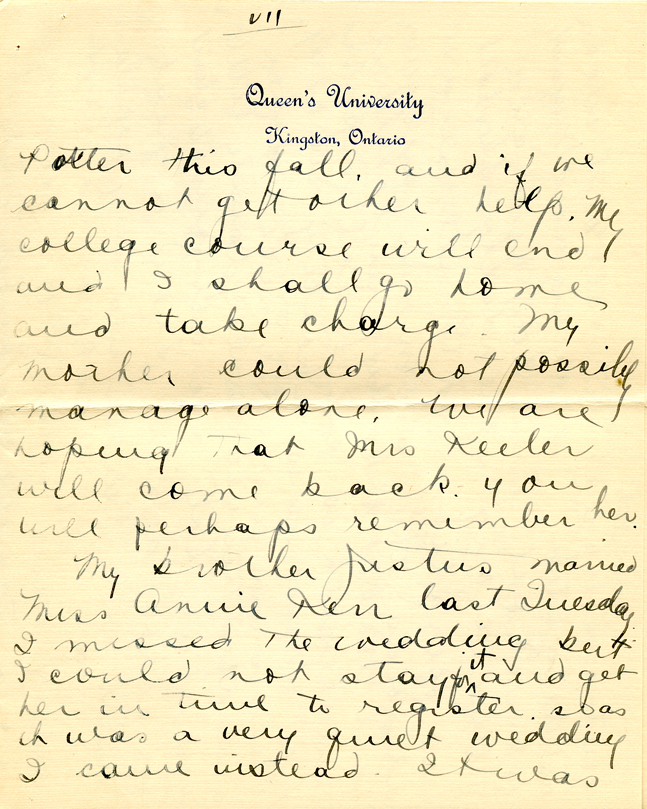 VII
Queen's University
Kingston, Ontario
Potter this fall, and if we
cannot get other help, My
college course will end
and I shall go home
and take charge. My
mother could not possibly
manage alone. We are
hoping that Mrs Keeler
will come back. you
will perhaps remember her.
My brother Justus married
Miss Annie Kerr last Tuesday
I missed the wedding but
I could not stay for it and get
her in time to register. so as
it was a very quiet wedding
I came instead. It was